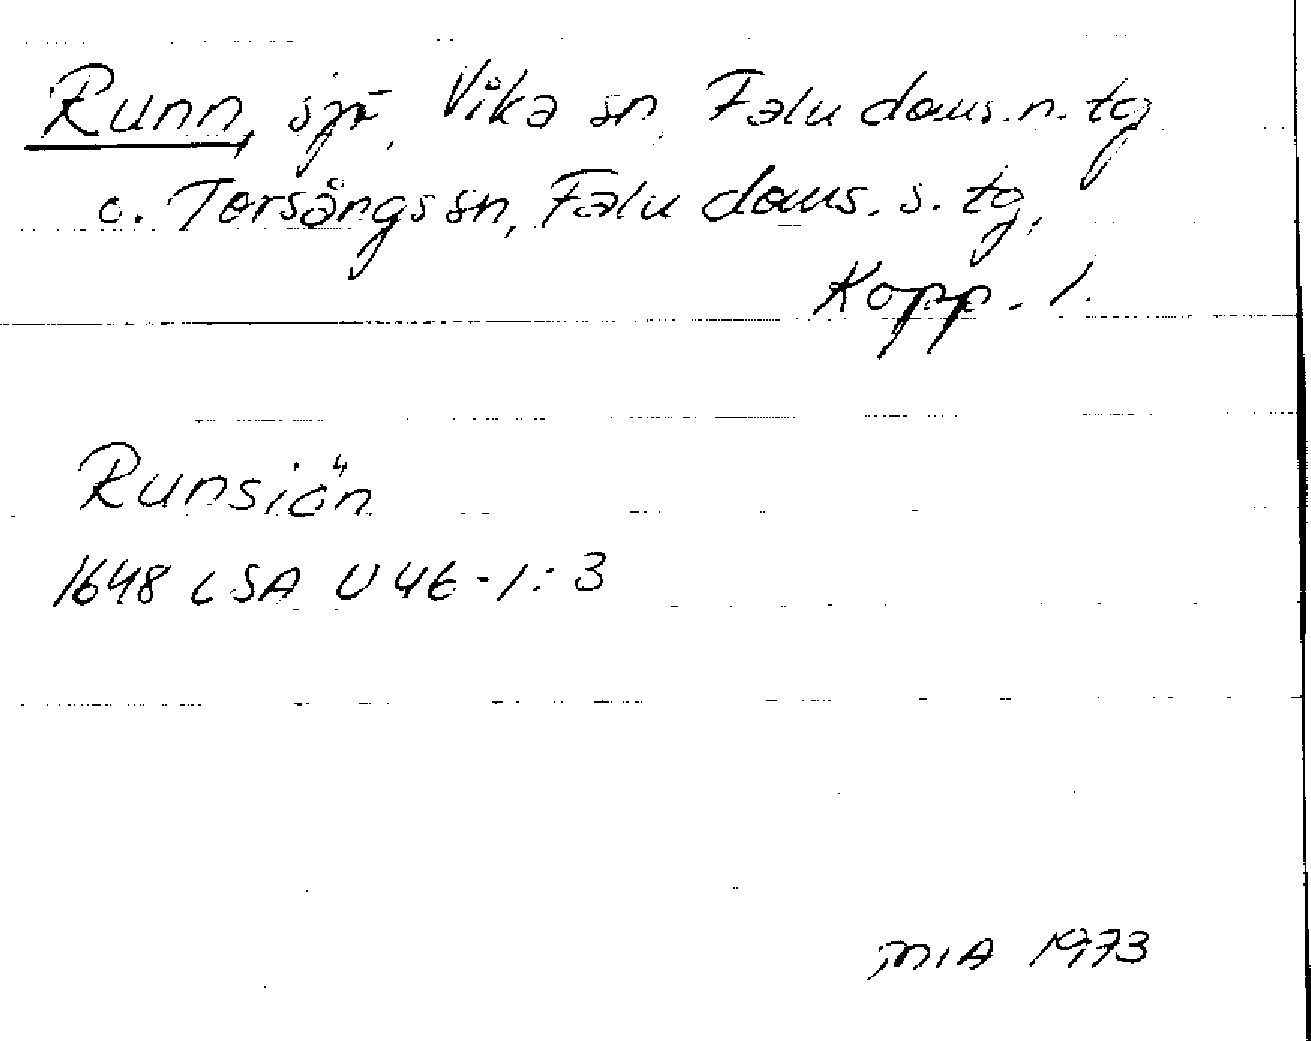 Runn, sjö, Vika sn, Falu doms. n. tg
o. Torsångs sn, Falu doms. s. tg,
Kopp. l.
Runsiön
1648 LSA U46-1:3
MIA 1973